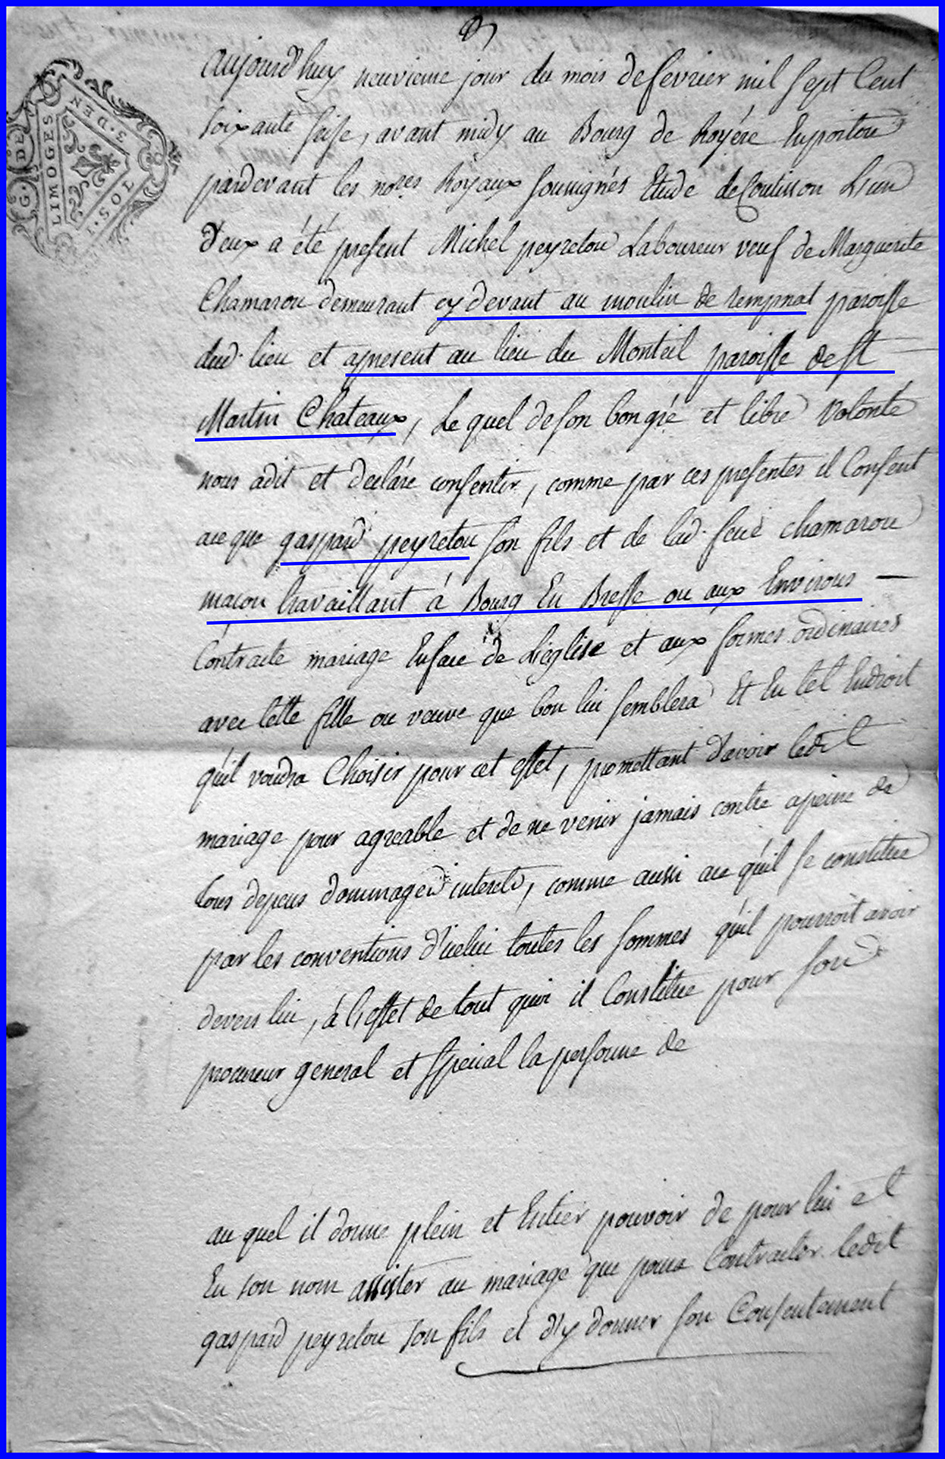 G. DE
LIMOGES
S. DEN
aujourd'huy neuvieme jour du mois de fevrier mil sept Cent
soixante seise, avant midy au Bourg de Royére En poitou
pardevant les nores Royaux soussignés Etude de Coutisson L'un
d'eux a été present Michel peyretou Laboureur veuf de Marguerite
Chamarou demeurant cy devant au moulin de rempnat paroisse
dud. lieu et apresent au lieu du Monteil paroisse de St
Martin Chateaux, Le quel de son bon gré et libre volonté
nous a dit et declaré consentir, comme par ces presentes il Consent
ace que gaspard peyretou son fils et de lad. feüe chamarou
macon travaillant à Bourg En Bresse ou aux Environs
Contracte mariage En face de L'église et aux formes ordinaires
avec telle fille ou veuve que bon lui semblera Et En tel Endroit
qu'il voudra Choisir pour cet effet, promettant d'avoir ledit
mariage pour agreable et de ne venir jamais contre apeine de
tous depens dommages interets, comme aussi ace qu'il se constitue
par les conventions d'icelui toutes les sommes qu'il pourroit avoir
devers lui, à L'effet de tout quoi il Constitue pour son
procureur general et special la personne de
au quel il donne plein et Entier pouvoir de pour lui et
En son nom assister au mariage que poura Contracter ledit
gaspard peyretou son fils et d'y donner son Consentement